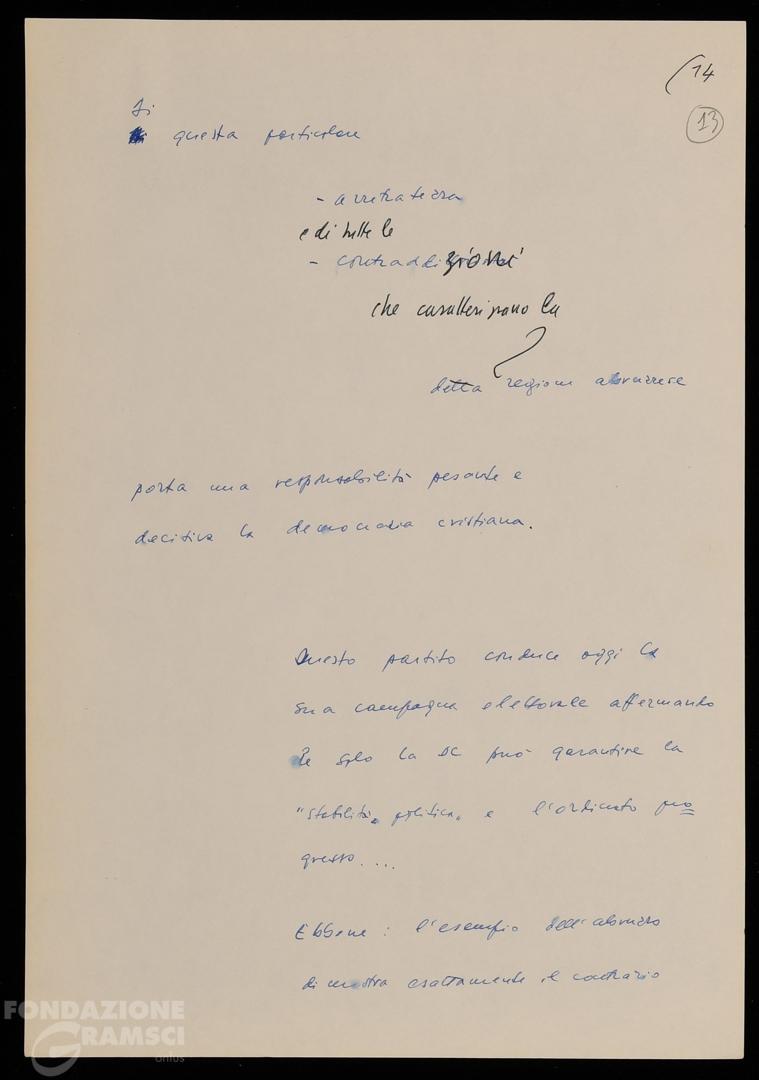 (14
13
Di
questa particolare
- arretratezza
e di tutte le
- contraddizioni
che caratterizzano la
della regione abruzzese
porta una responsabilità pesante e
decisiva la democrazia cristiana.
Questo partito conduce oggi la
sua campagna elettorale affermando
che solo la DC può garantire la
"stabilità" politica" e l'ordinato pro
gresso....
Ebbene: l'esempio dell'abruzzo
dimostra esattamente il contrario
FONDAZIONE
GRAMSCI
onlus